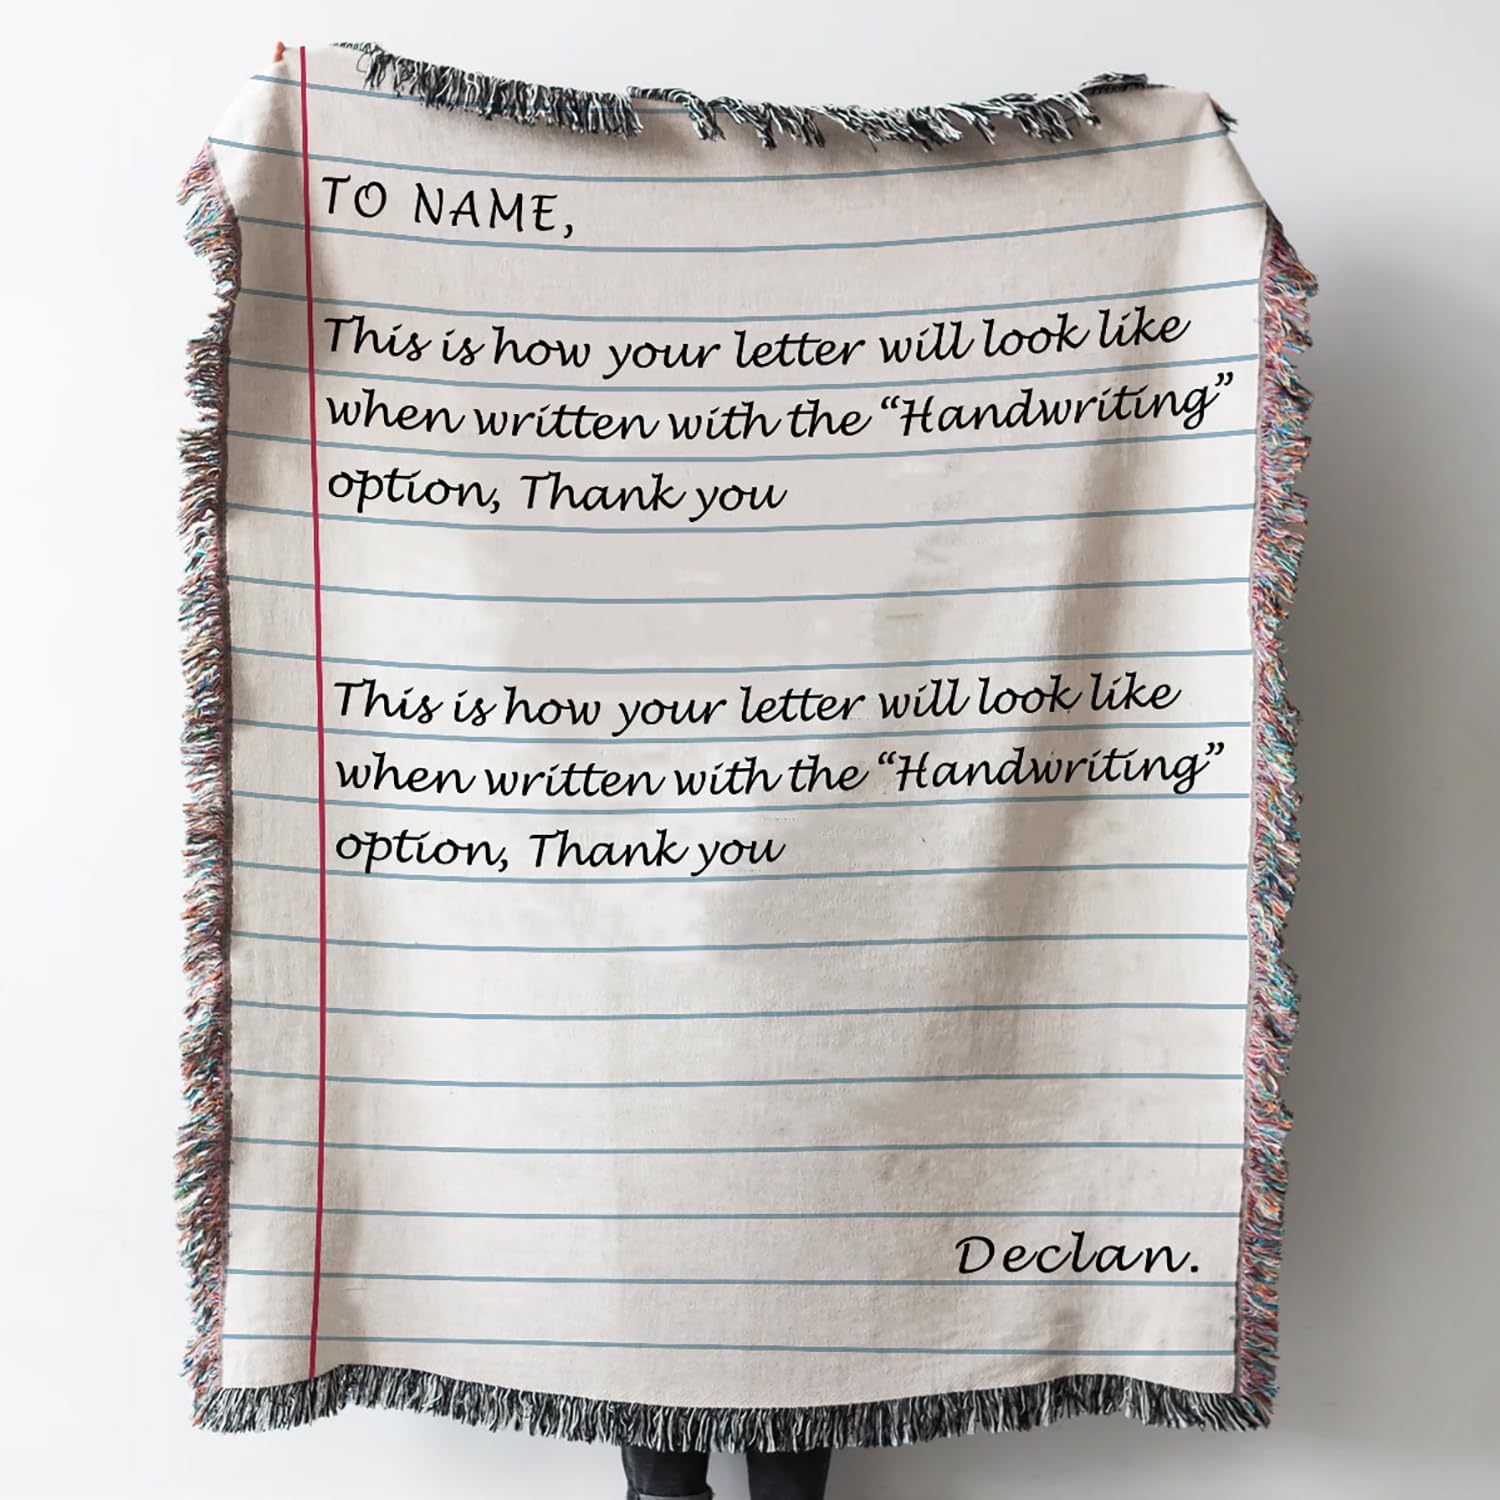 TO NAME,
This is how your letter will look like
when written with the “Handwriting”
option, Thank you
This is how your letter will look like
when written with the “Handwriting”
option, Thank you
Declan.